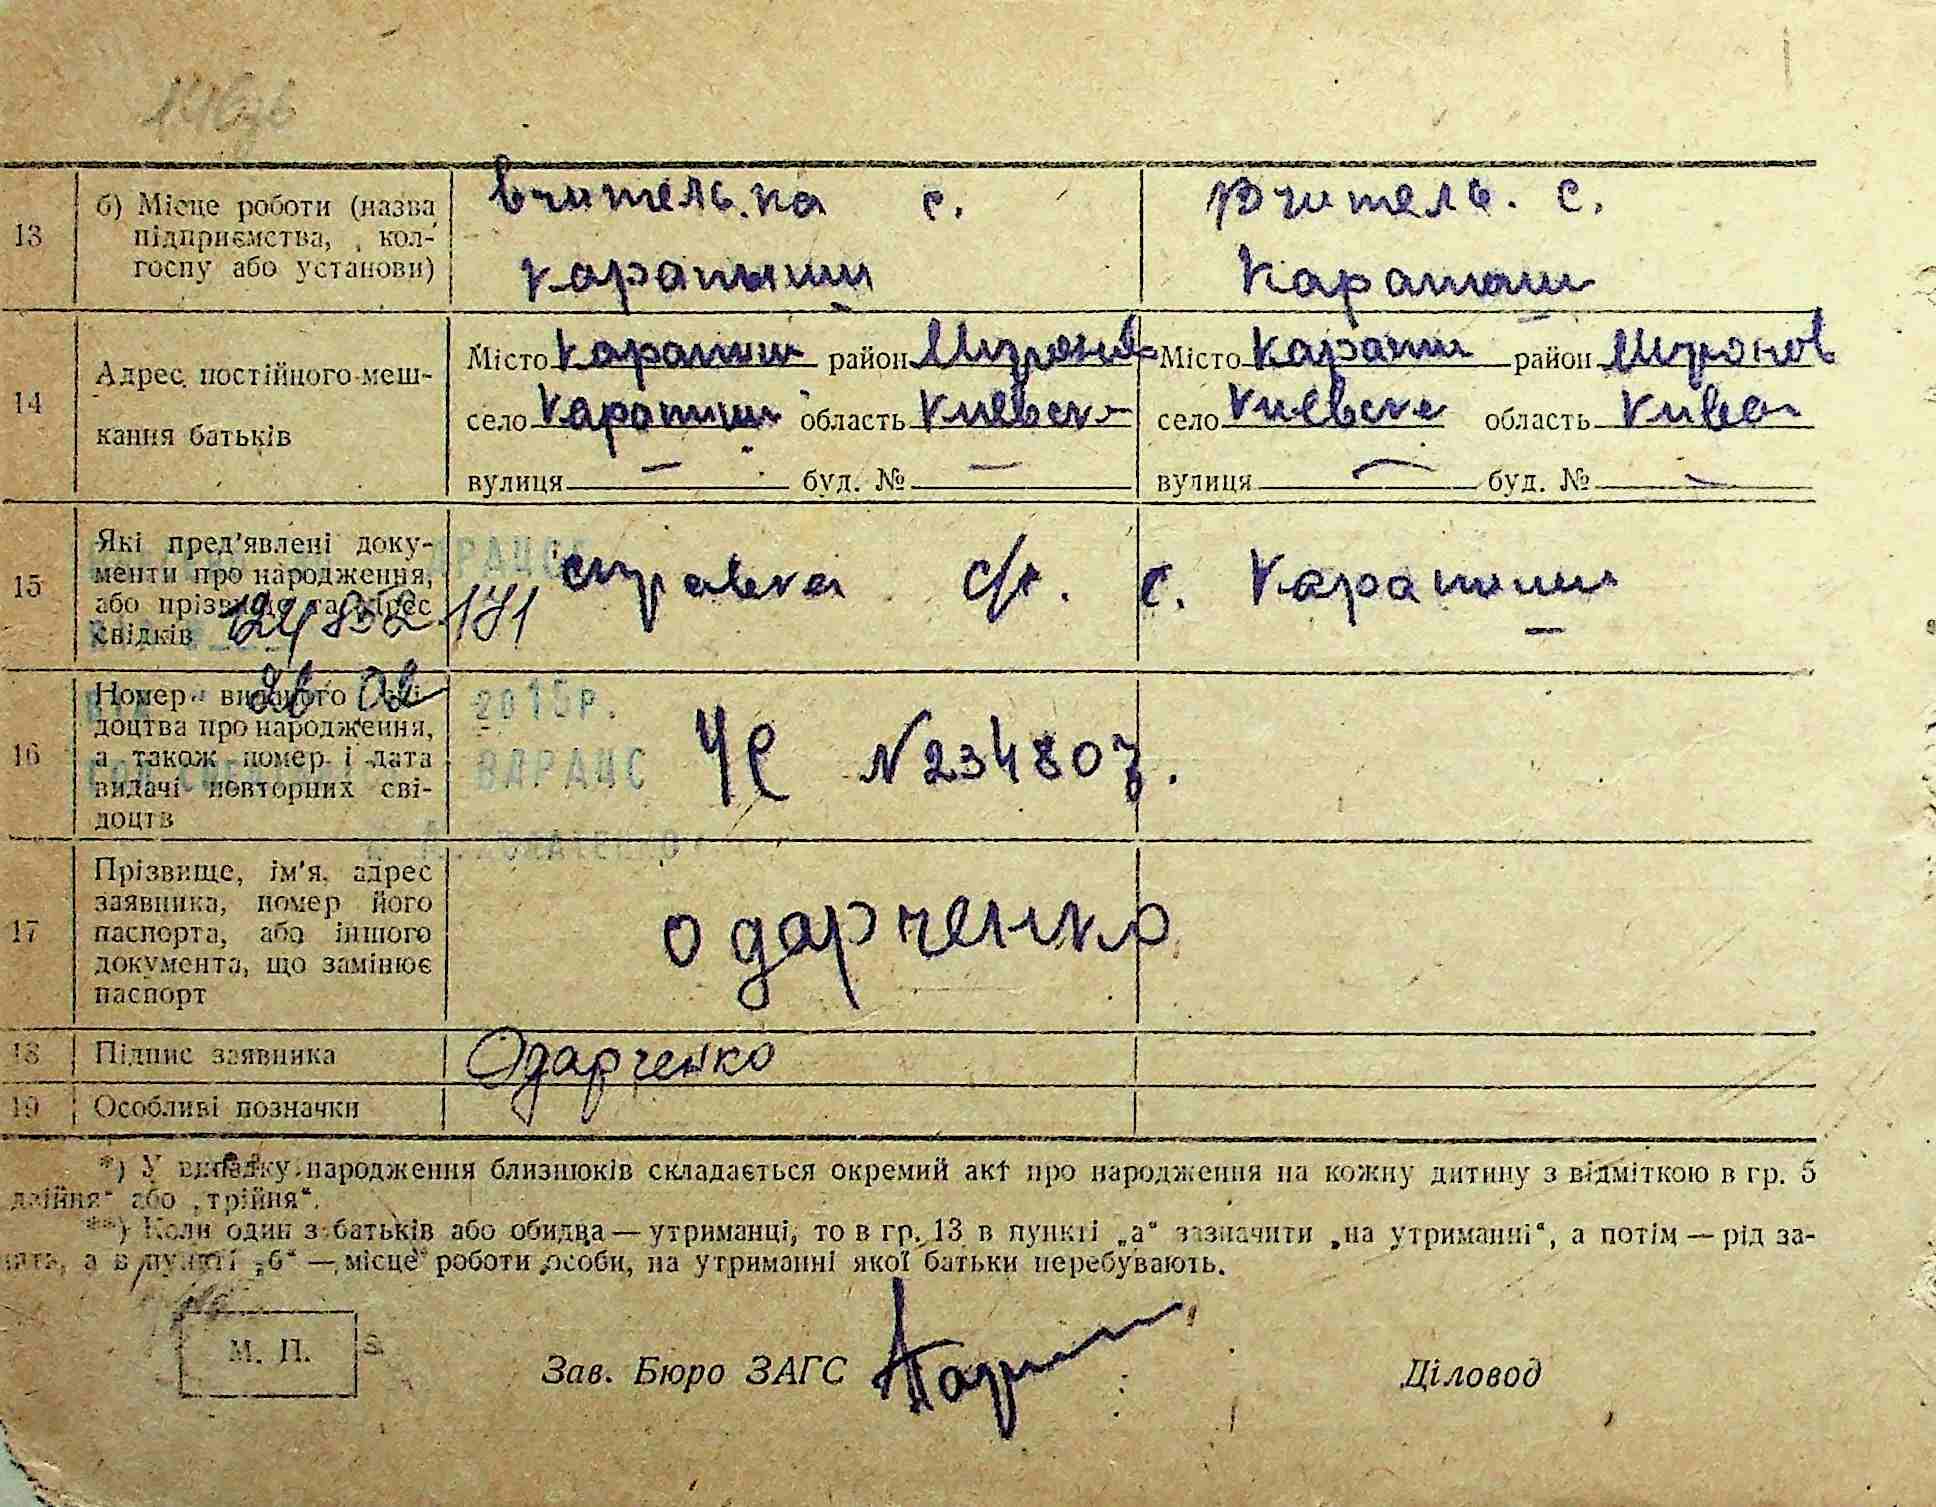 13
б) Місце роботи (назва
підприємства, кол-
госпу або установи)
вчителька с.
Карапыши
Вчитель. с.
Карапыши
14
Адрес постійного меш-
кання батьків
Місто Карапыши район Миронов
село Карапиши область Киевск
вулиця — буд. № —
Місто Карапиши район Миронов
село Киевске область Киев
вулиця — буд. № —
15
Які пред'явлені доку-
менти про народження,
або прізвище та адрес
свідків
справка с/р. с. Карапиши
124 852 171
16
Номер виданого сві-
доцтва про народження,
а також номер і дата
видачі повторних сві-
доцтв
26 02 2015р.
ВДРАЦС
ЧС №234807.
17
Прізвище, ім'я, адрес
заявника, номер його
паспорта, або іншого
документа, що замінює
паспорт
Одарченко
18 Підпис заявника Одарченко
19 Особливі позначки
*) У випадку народження близнюків складається окремий акт про народження на кожну дитину з відміткою в гр. 5
„двійня“ або „трійня“.
**) Коли один з батьків або обидва — утриманці, то в гр. 13 в пункті „а“ зазначити „на утриманні“, а потім — рід за-
нять, а в пункті „б“ — місце роботи особи, на утриманні якої батьки перебувають.
М. П.
Зав. Бюро ЗАГС
Діловод